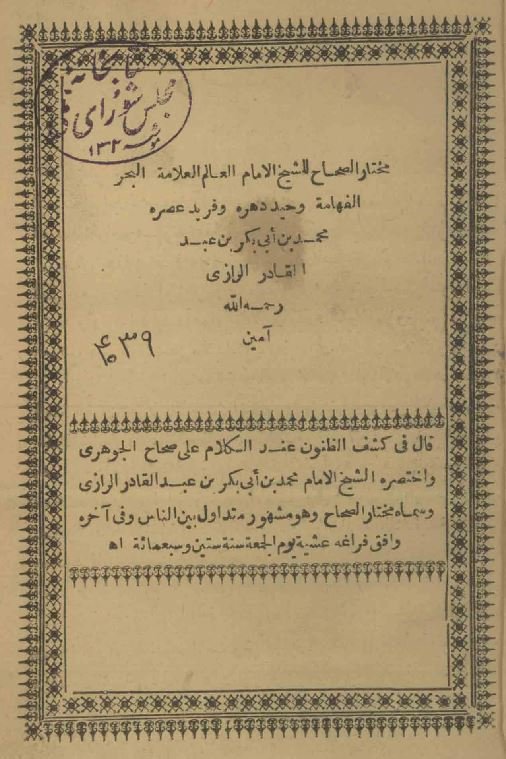 كتابخانه
مجلس شورای
۱۳۲
مختار الصحاح للشيخ الامام العالم العلامة البحر
الفهامة وحيد دهره وفريد عصره
محمد بن أبي بكر بن عبد
القادر الرازى
رحمه الله
آمين
قال فى كشف الظنون عند الكلام على صحاح الجوهرى
واختصره الشيخ الامام محمد بن أبي بكر بن عبد القادر الرازى
وسماه مختار الصحاح وهو مشهور متداول بين الناس وفى آخره
وافق فراغه عشية يوم الجمعة سنة ستين وسبعمائة اه